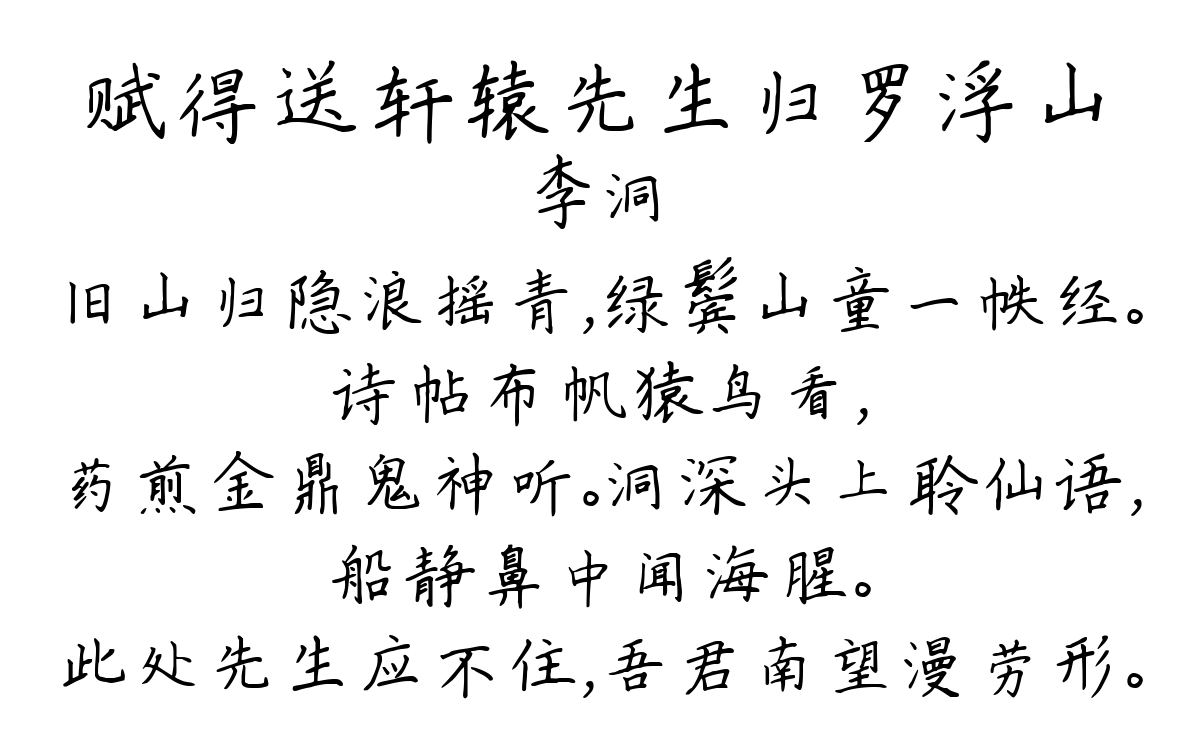 赋得送轩辕先生归罗浮山
李洞
旧山归隐浪摇青,绿鬓山童一帙经。
诗帖布帆猿鸟看,
药煎金鼎鬼神听。洞深头上聆仙语,
船静鼻中闻海腥。
此处先生应不住,吾君南望漫劳形。